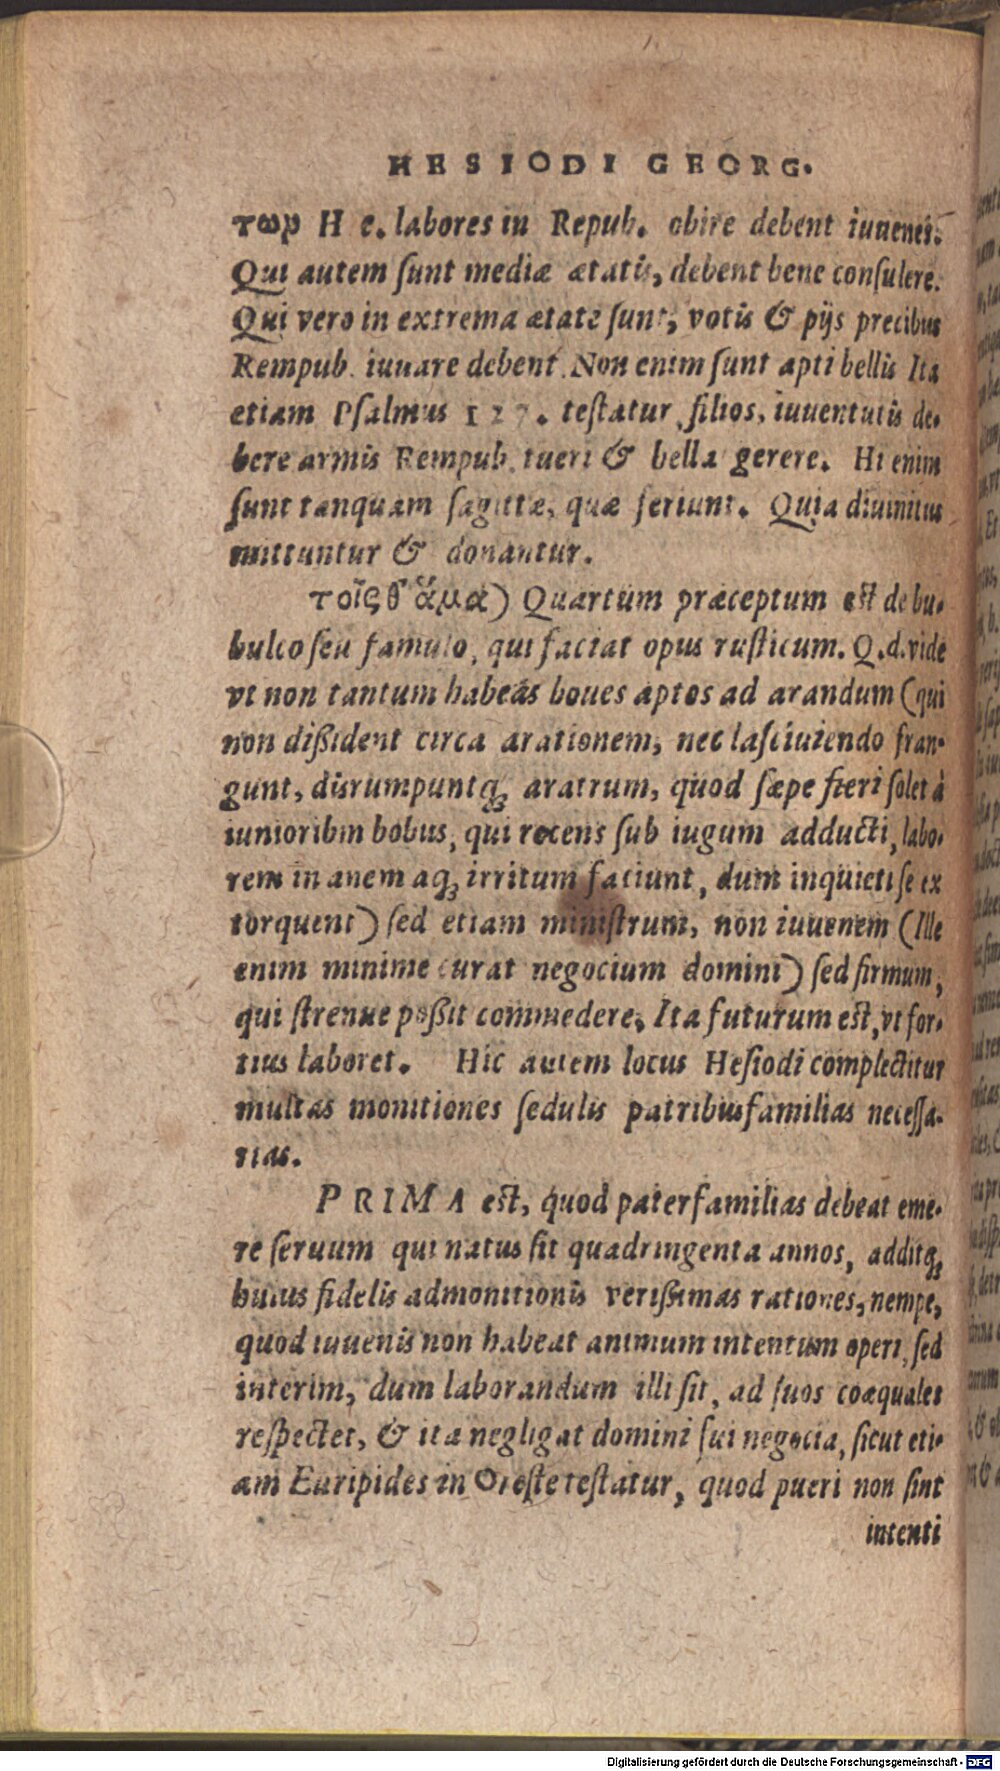 HESIODI GEORG.
τωρ H e. labores in Repub. obire debent iuuenes.
Qui autem sunt mediæ ætatis, debent bene consulere.
Qui vero in extrema ætate sunt, votis & pijs precibus
Rempub. iuuare debent. Non enim sunt apti bellis Ita
etiam Psalmus 127. testatur, filios, iuuentutis de-
bere armis Rempub. tueri & bella gerere. Hi enim
sunt tanquam sagittæ, quæ feriunt. Quia diuinitus
mittuntur & donantur.
τοῖς θ' ἅμα) Quartum præceptum est de bu-
bulco seu famulo, qui faciat opus rusticum. Q.d. vide
vt non tantum habeas boues aptos ad arandum (qui
non dißident circa arationem, nec lasciuiendo fran-
gunt, dirrumpuntq; aratrum, quod sæpe fieri solet à
iunioribus bobus, qui recens sub iugum adducti, labo-
rem inanem aq; irritum faciunt, dum inquieti se ex
torquent) sed etiam ministrum, non iuuenem (Ille
enim minime curat negocium domini) sed firmum,
qui strenue poßit commedere, Ita futurum est, vt for-
tius laboret. Hic autem locus Hesiodi complectitur
multas monitiones sedulis patribusfamilias necessa-
rias.
PRIMA est, quod paterfamilias debeat eme-
re seruum qui natus sit quadringenta annos, additq;
huius fidelis admonitionis verißimas rationes, nempe,
quod iuuenis non habeat animum intentum operi, sed
interim, dum laborandum illi sit, ad suos coæquales
respectet, & ita negligat domini sui negocia, sicut eti-
am Euripides in Oreste testatur, quod pueri non sint
intenti
Digitalisierung gefördert durch die Deutsche Forschungsgemeinschaft - DFG